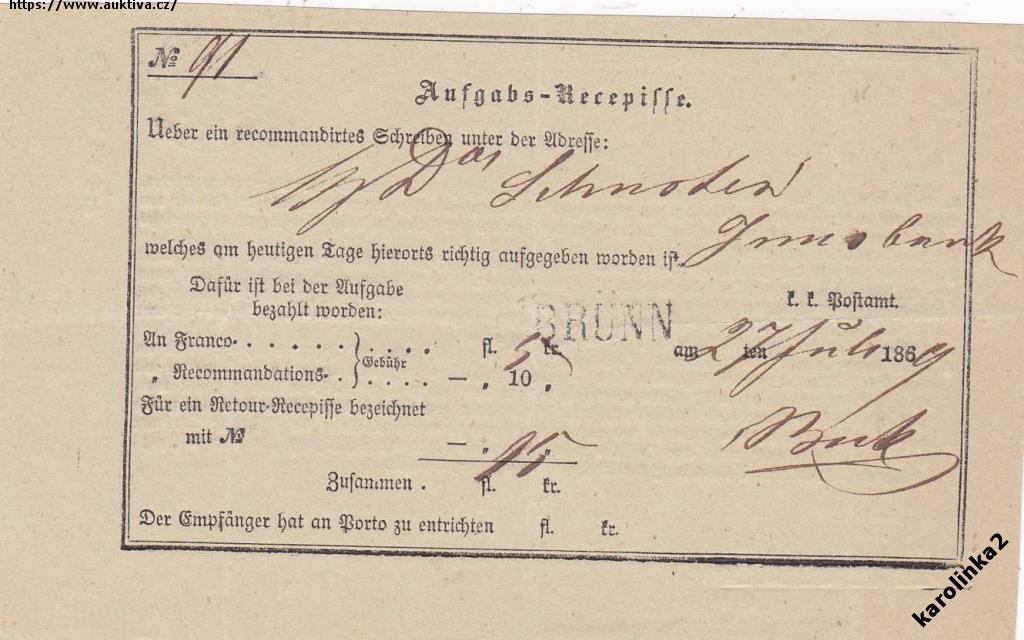 https://www.auktiva.cz/
№ 91
Aufgabs-Recepisse.
Ueber ein recommandirtes Schreiben unter der Adresse:
welches am heutigen Tage hierorts richtig aufgegeben worden ist.
Dafür ist bei der Aufgabe
bezahlt worden:
k. k. Postamt.
BRÜNN
An Franco . . . . . . . . . . fl. 5 kr.
am 27 ten Juli 1869
„ Recommandations- . . . . . — „ 10 „
Gebühr
Für ein Retour-Recepisse bezeichnet
mit № — „ „
15
Zusammen . fl. kr.
Der Empfänger hat an Porto zu entrichten fl. kr.
karolinka2